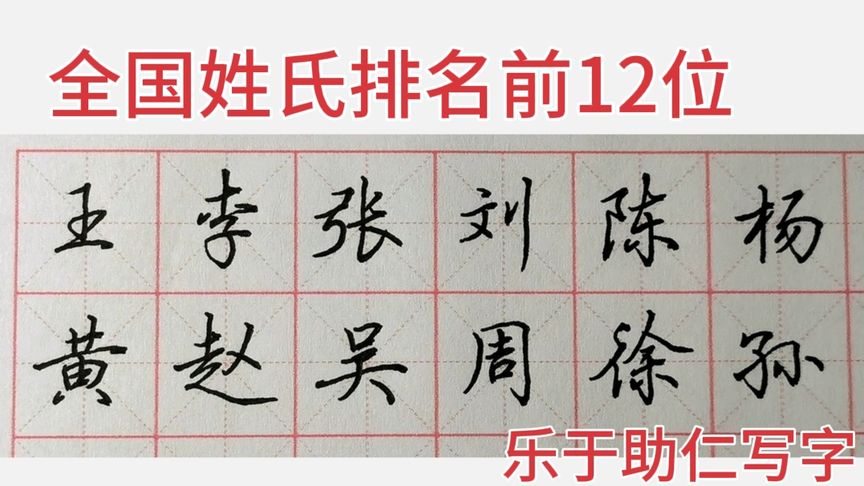 全国姓氏排名前12位
王李张刘陈杨
黄赵吴周徐孙
乐于助仁写字